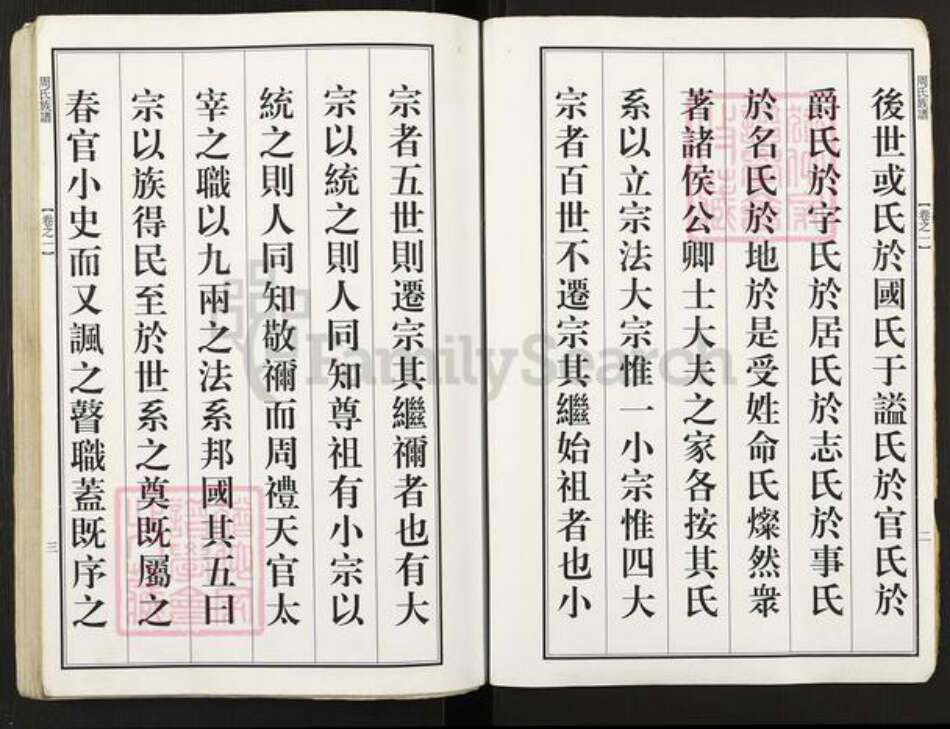 周氏族譜
【卷之一】
二
後世或氏於國氏于謚氏於官氏於
爵氏於字氏於居氏於志氏於事氏
於名氏於地於是受姓命氏燦然衆
著諸侯公卿士大夫之家各按其氏
系以立宗法大宗惟一小宗惟四大
宗者百世不遷宗其繼始祖者也小
宗者五世則遷宗其繼禰者也有大
宗以統之則人同知尊祖有小宗以
統之則人同知敬禰而周禮天官太
宰之職以九兩之法系邦國其五曰
宗以族得民至於世系之奠既屬之
春官小史而又諷之瞽職蓋既序之
周氏族譜
【卷之一】
三
FamilySearch